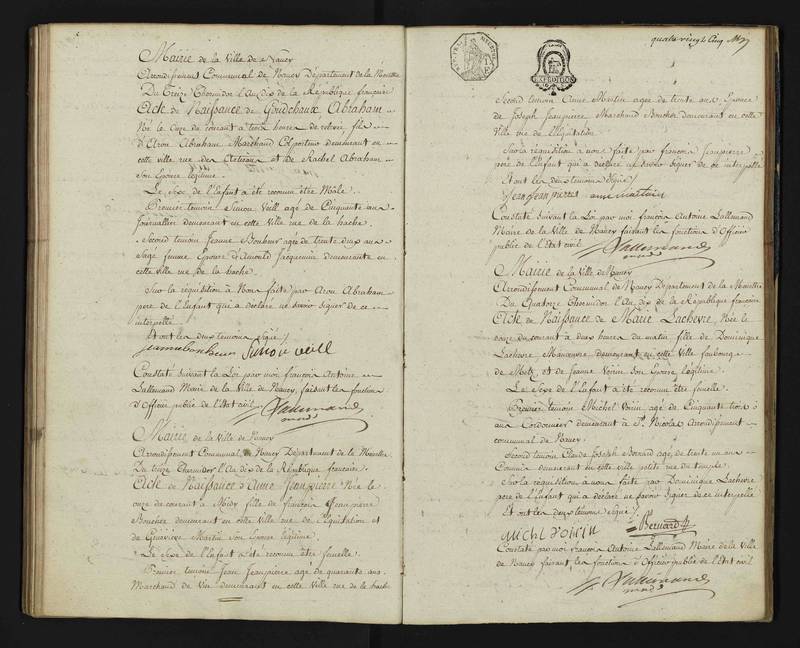 Mairie de la Ville de Nancy
Arrondissement Communal de Nancy Département de la Meurthe
Du Treize Thermidor l'An dix de la République françoise
Acte de Naissance de Goudchaux Abraham
Né le onze du courant à trois heures de relevée fils
d'Aron Abraham Marchand Colporteur demeurant en
cette ville rue des Artisans et de Rachel Abraham
son Epouse légitime.
Le Sexe de l'Enfant a été reconnu être Mâle.
Premier temoin Simon Veill agé de Cinquante ans
Journallier demeurant en cette Ville rue de la hache.
Second temoin Jeanne Bonheur agée de trente deux ans
Sage femme Epouse d'Arnould Jacquemin demeurante en
cette ville rue de la hache
Sur la réquisition à Nous faite par Aron Abraham
pere de l'Enfant qui a déclaré ne savoir signer de ce
interpellé
Et ont les deux temoins signé
jeanne bonheur Simon Veill
Constaté Suivant la Loi par moi françois Antoine
Lallemand Maire de la Ville de Nancy, faisant les fonctions
d'Officier public de l'Etat civil
Lallemand
Mairie de la Ville de Nancy
Arrondissement Communal de Nancy Département de la Meurthe
Du treize Thermidor l'An dix de la République françoise
Acte de Naissance d'Anne Jeanpierre Née le
onze du courant à Midy fille de françois Jeanpierre
Boucher demeurant en cette Ville rue de l'Equitation et
de Geneviève Martin son Epouse légitime.
Le Sexe de l'Enfant a été reconnu être femelle.
Premier temoin Jean Jeanpierre agé de quarante ans
Marchand de Vin demeurant en cette Ville rue de la hache
quatre vingt Cinq
Second temoin Anne Martin agée de trente ans Epouse
de Joseph Jeanpierre Marchand Boucher demeurant en cette
Ville rue de l'Equitation
Sur la réquisition à nous faite par françois Jeanpierre
pere de l'Enfant qui a déclaré ne savoir signer de ce interpellé
Et ont les deux temoins signé
Jean Jean pierre anne martin
Constaté suivant la Loi par moi françois Antoine Lallemand
Maire de la Ville de Nancy faisant les fonctions d'Officier
public de l'Etat civil
Lallemand
Mairie de la Ville de Nancy
Arrondissement Communal de Nancy Département de la Meurthe
Du Quatorze Thermidor l'An dix de la République françoise
Acte de Naissance de Marie Lachevre, Née le
onze du courant à deux heures du matin fille de Dominique
Lachevre Manœuvre, demeurant en cette Ville faubourg
de Metz et de Jeanne Voirin son Epouse légitime.
Le Sexe de l'Enfant a été reconnu être femelle.
Premier temoin Michel Voirin agé de Cinquante trois
ans Cordonnier demeurant à St Nicolas Arrondissement
communal de Nancy.
Second temoin Claude Joseph Bernard agé de trente un ans
Commis demeurant en cette ville petite rue du temple
Sur la réquisition à nous faite par Dominique Lachevre
pere de l'Enfant qui a déclaré ne savoir signer de ce interpellé
Et ont les deux temoins signé
Bernard
Constaté par moi françois Antoine Lallemand Maire de la Ville
de Nancy faisant les fonctions d'Officier public de l'Etat civil
Lallemand